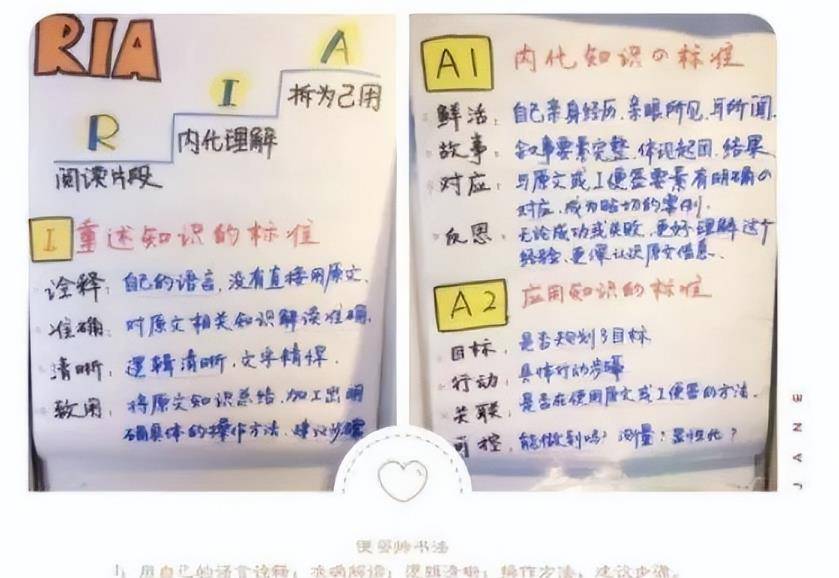 RIA
A
拆为己用
I
内化理解
R
阅读片段
I 重述知识的标准
诠释：自己的语言，没有直接用原文.
准确：对原文相关知识解读准确.
清晰：逻辑清晰，文字精悍.
致用：将原文知识总结、加工出明
确具体的操作方法、建议步骤
A1 内化知识の标准
鲜活：自己亲身经历、亲眼所见、耳所闻.
故事：叙事要素完整，体现起因、结果
对应：与原文或I便签要素有明确の
对应，成为贴切的案例.
反思：无论成功或失败，更好理解这个
经验、更深认识原文信息.
A2 应用知识的标准
目标，是否规划了目标
行动：具体行动步骤
关联：是否在使用原文或I便签的方法.
可控，能做到吗？测量？显性化？
JANE
便签帅书法
1、用自己的语言诠释；准确解读；逻辑清晰；操作方法、建议步骤。